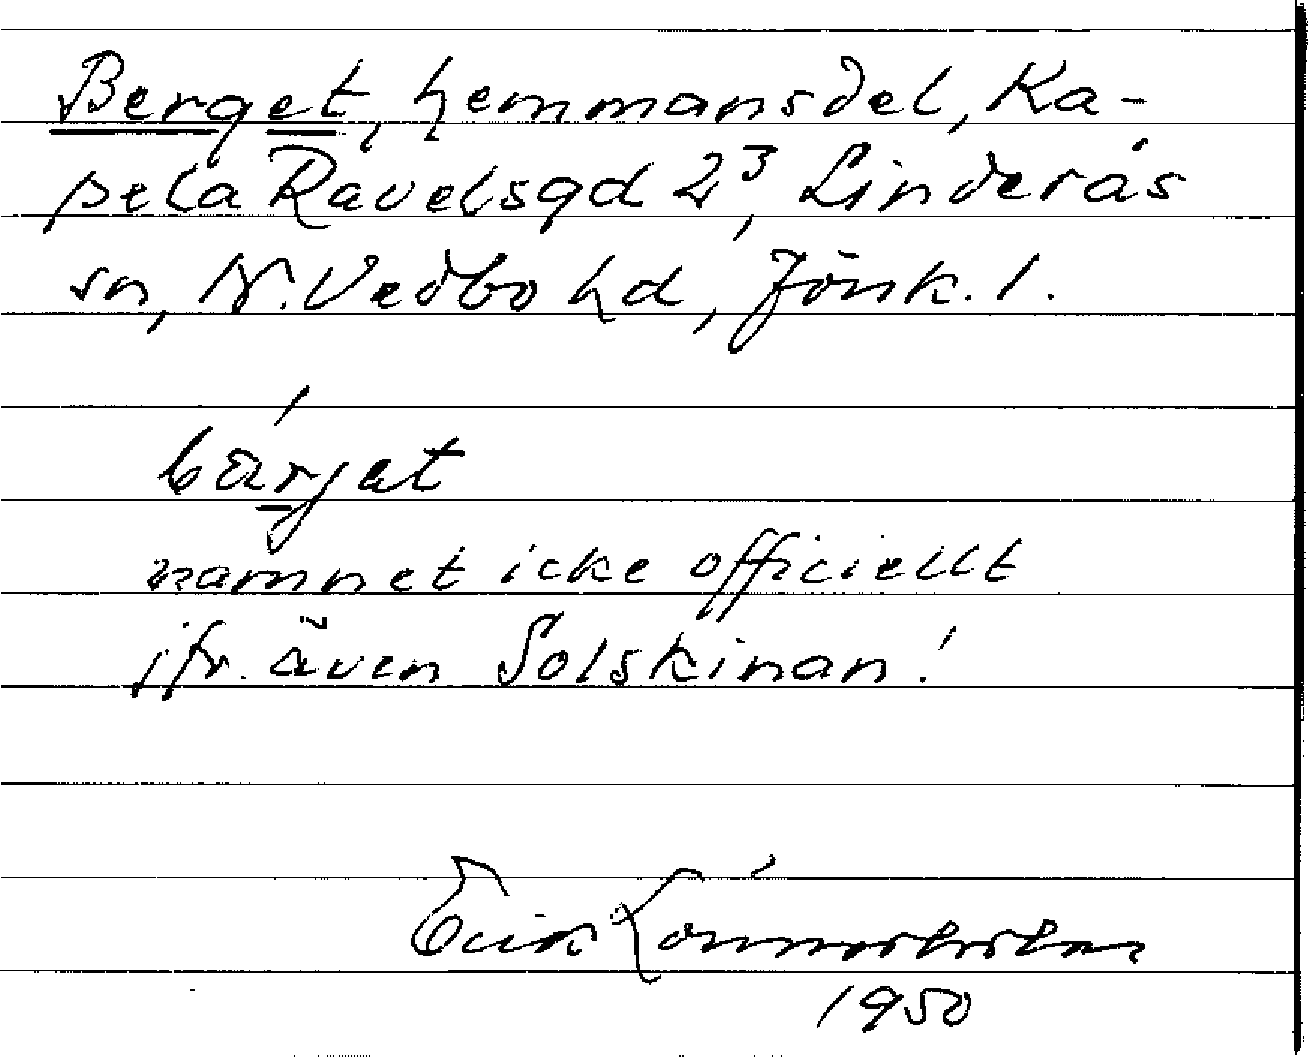 Berget, hemmansdel, Ka-
pela Ravelsgd 2³, Linderås
sn, N. Vedbo hd, Jönk. l.
bärjat
namnet icke officiellt
jfr. även Solskinan!
Erik
1950